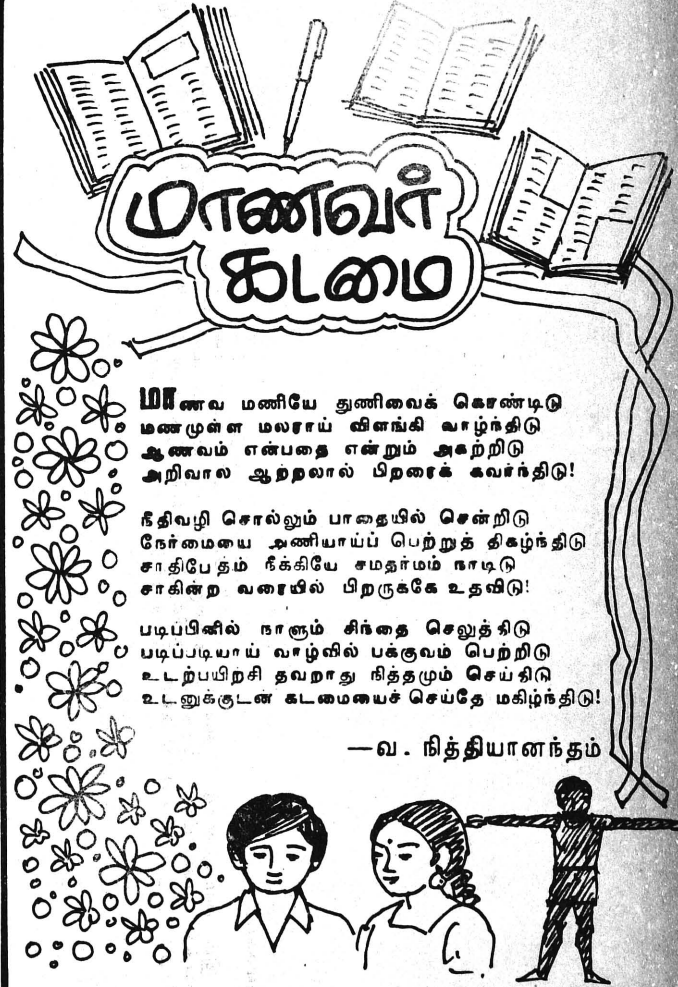 மாணவர்
கடமை
மாணவ மணியே துணிவைக் கொண்டிடு
மணமுள்ள மலராய் விளங்கி வாழ்ந்திடு
ஆணவம் என்பதை என்றும் அகற்றிடு
அறிவால ஆற்றலால் பிறரைக் கவர்ந்திடு!
நீதிவழி சொல்லும் பாதையில் சென்றிடு
நேர்மையை அணியாய்ப் பெற்றுத் திகழ்ந்திடு
சாதிபேதம் நீக்கியே சமதர்மம் நாடிடு
சாகின்ற வரையில் பிறருக்கே உதவிடு!
படிப்பினில் நாளும் சிந்தை செலுத்திடு
படிப்படியாய் வாழ்வில் பக்குவம் பெற்றிடு
உடற்பயிற்சி தவறாது நித்தமும் செய்திடு
உடனுக்குடன் கடமையைச் செய்தே மகிழ்ந்திடு!
—வ. நித்தியானந்தம்